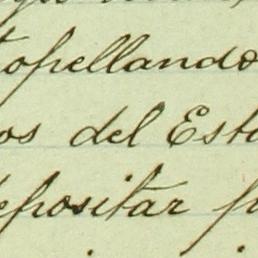 topellando
os del Esta
depositar p